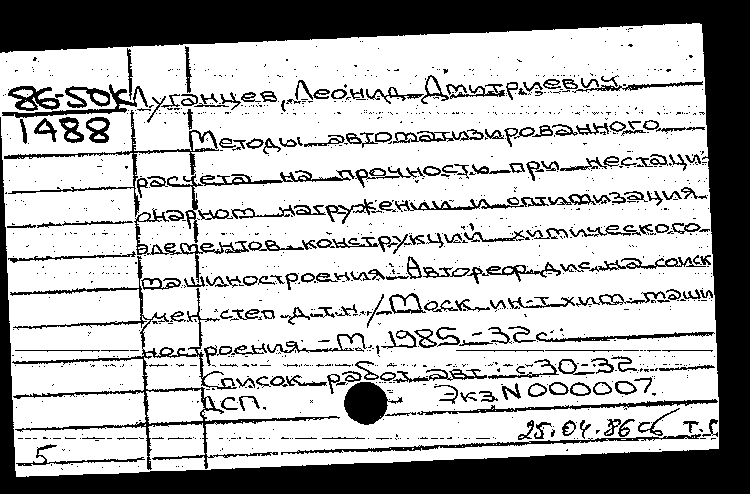 86-50К Луганцев, Леонид Дмитриевич
1488
Методы автоматизированного
расчета на прочность при нестаци-
онарном нагружении и оптимизация
элементов конструкций химического
машиностроения: Автореф. дис. на соиск.
учен. степ. д.т.н. / Моск. ин-т хим. маши
ностроения. - М., 1985. - 32 с.
Список работ авт.: с. 30-32
ДСП. Экз. N 000007.
25.04.86 сб т.
5